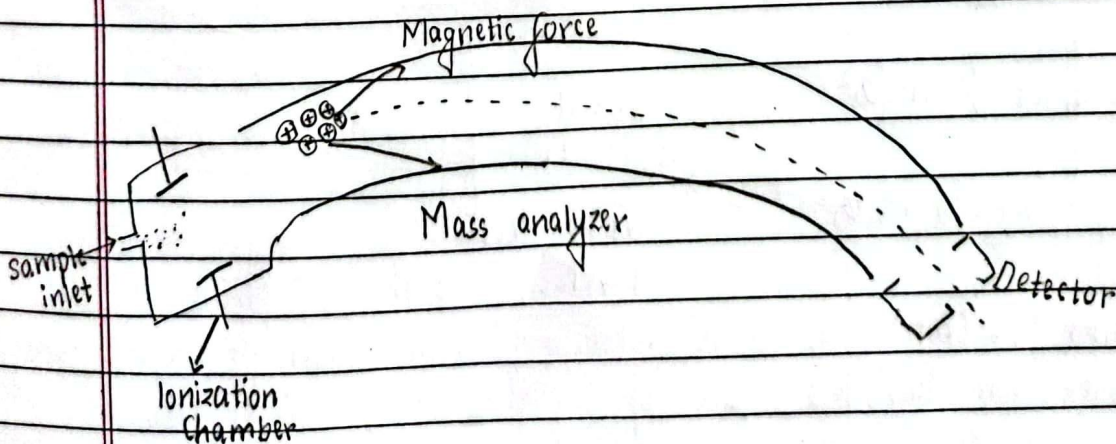 Magnetic force
Mass analyzer
sample
inlet
Detector
Ionization
Chamber